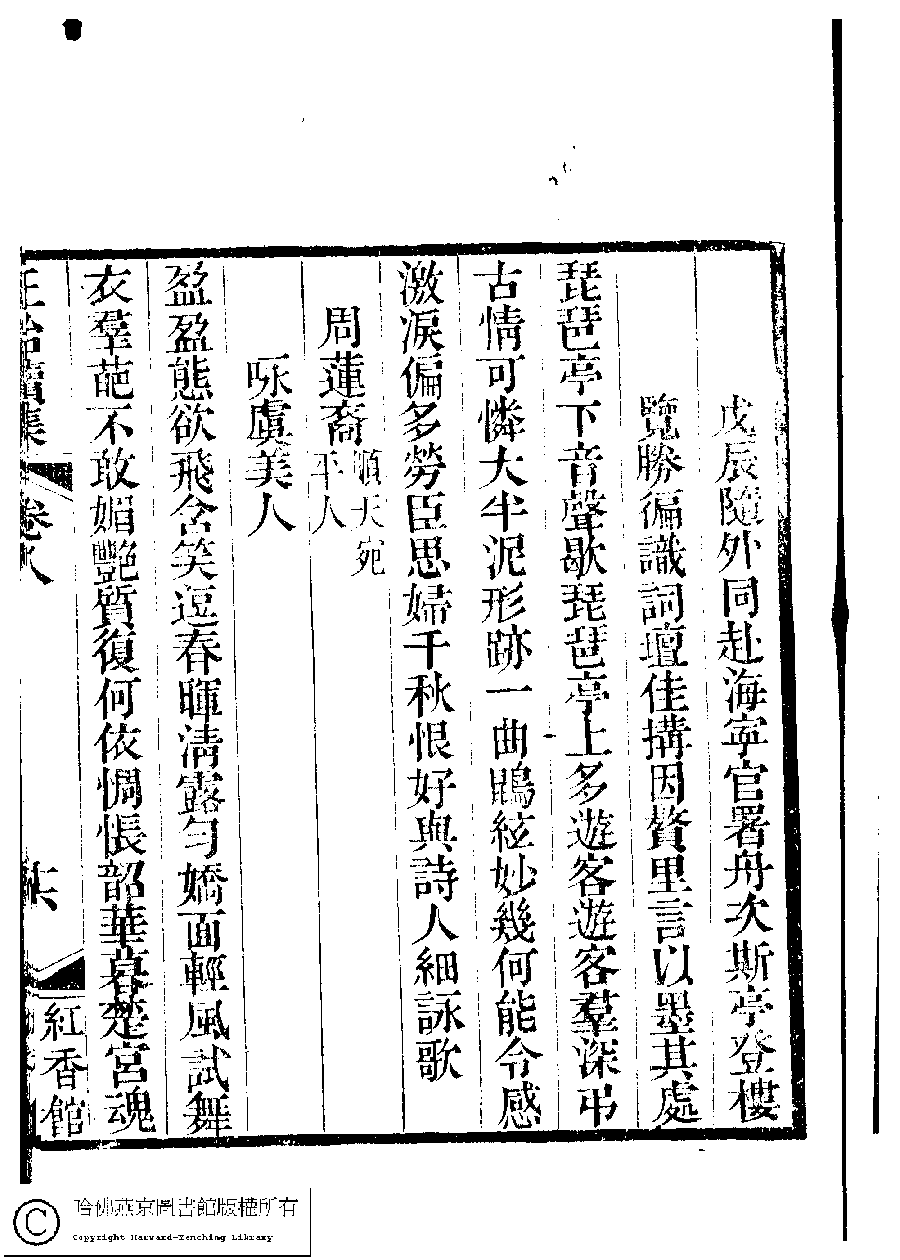 戊辰隨外同赴海寧官署舟次斯亭登樓
覽勝徧識詞壇佳搆因贅里言以墨其處
琵琶亭下音聲歇琵琶亭上多遊客遊客羣深弔
古情可憐大半泥形跡一曲鵾絃妙幾何能令感
激淚偏多勞臣思婦千秋恨好與詩人細詠歌
周蓮裔順天宛
平人
咏虞美人
盈盈態欲飛含笑逗春暉淸露勻嬌面輕風試舞
衣羣葩不敢媚艷質復何依惆悵韶華暮楚宮魂
卷八
紅香館
哈佛燕京圖書館版權所有
Copyright Harvard-Yenching Library